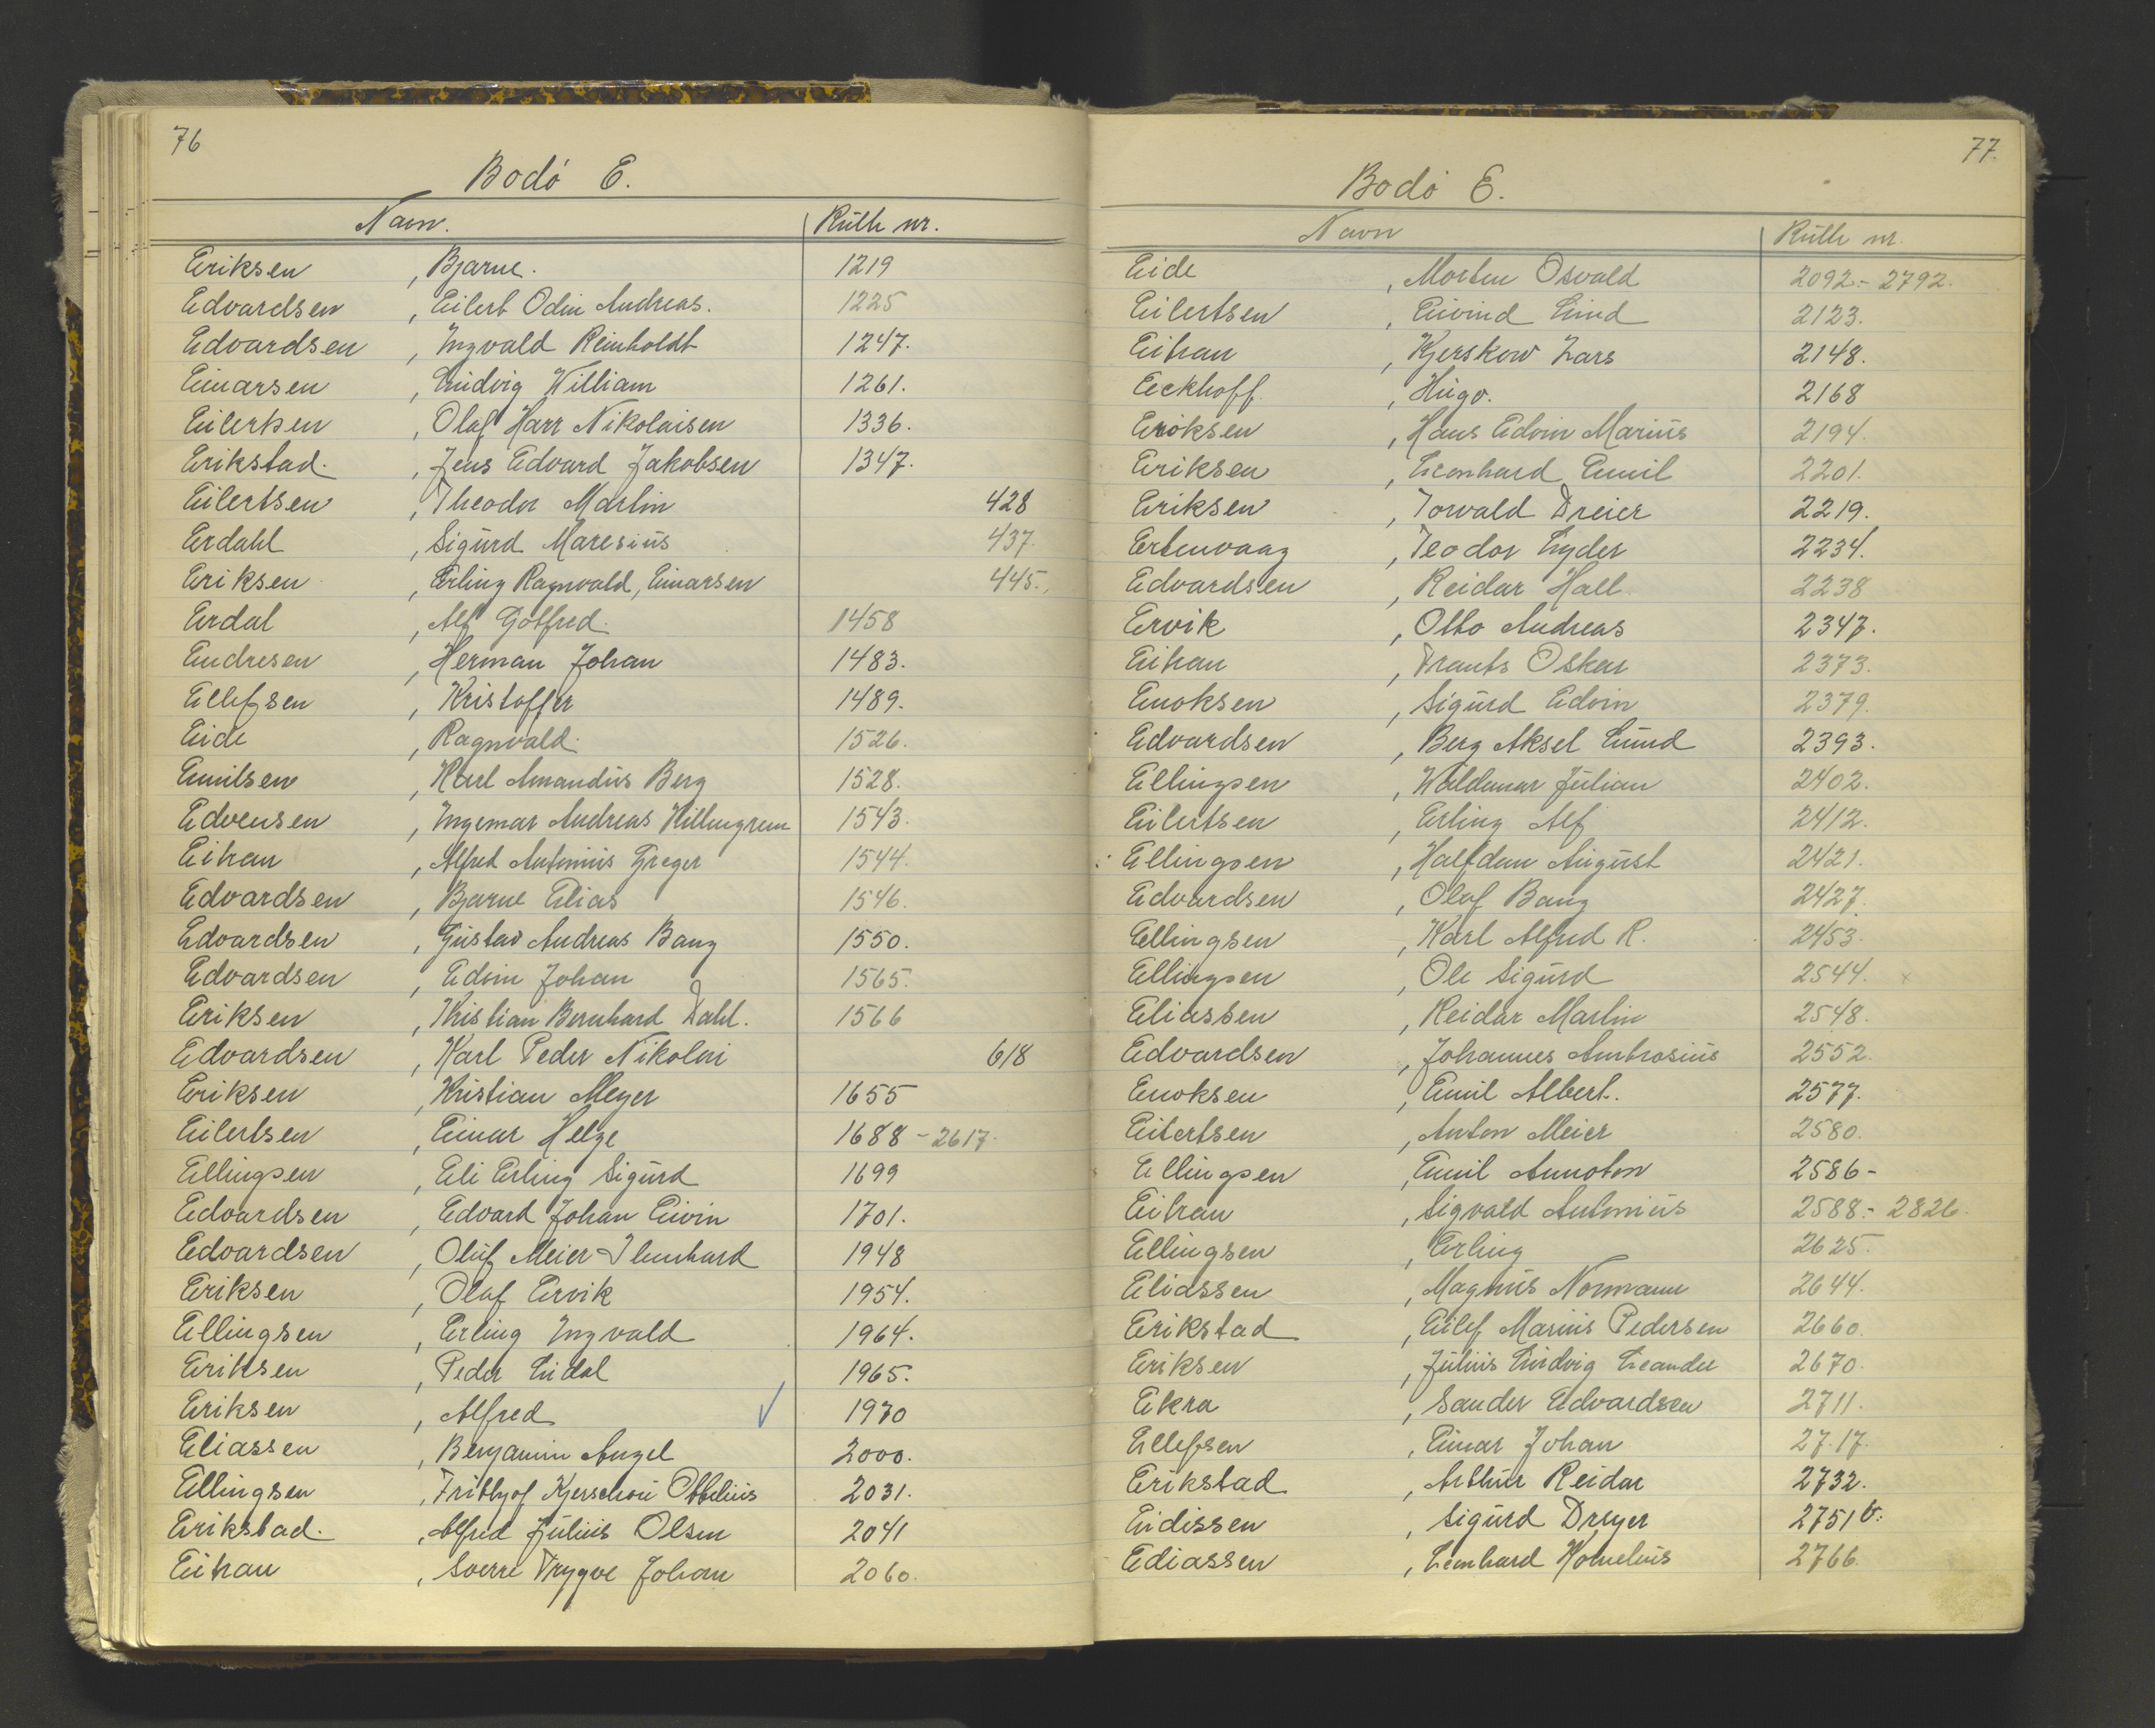 76
Bodö E.
Navn. Rulle nr.
Eriksen , Bjarne. 1219
Edvardsen , Eilert Odin Andreas. 1225
Edvardsen , Ingvald Reinholdt 1247.
Einarsen , Ludvig William 1261.
Eilertsen , Olaf Harr Nikolaisen 1336.
Erikstad. , Jens Edvard Jakobsen 1347.
Eilertsen , Theodor Martin 428
Erdahl , Sigurd Maresius 437.
Eriksen , Erling Ragnvald, Einarsen 445.
Erdal , Alf Gotfred. 1458
Endresen , Herman Johan 1483.
Ellefsen , Kristoffer 1489.
Eide , Ragnvald. 1526.
Emilsen , Karl Amandus Berg 1528.
Edvensen , Ingemar Andreas 1543.
Eitran , Alfred Antonius Greger 1544.
Edvardsen , Bjarne Elias 1546.
Edvardsen , Gustav Andreas Bang 1550.
Edvardsen , Edvin Johan 1565.
Eriksen , Kristian Bernhard Dahl. 1566
Edvardsen , Karl Peder Nikolai 618
Eriksen , Kristian Meyer 1655
Eilertsen , Einar Helge 1688 - 2617.
Ellingsen , Eli Erling Sigurd 1699
Edvardsen , Edvard Johan Eivin 1701.
Edvardsen , Oluf Meier 1948
Eriksen , Olaf Ervik 1954.
Ellingsen , Erling Ingvald 1964.
Eriksen , Peder Lidal 1965.
Eriksen , Alfred ✓ 1970
Eliassen , Benjamin Angel 2000.
Ellingsen , Frithjof Kjerschou Ottelius 2031.
Erikstad. , Alfred Julius Olsen 2041
Eitran , Sverre Trygve Johan 2060.
77.
Bodö E.
Navn Rulle nr.
Eide , Morten Osvald 2092.- 2792.
Eilertsen , Eivind Lind 2123.
Eitran , Kjerskow Lars 2148.
Eeckhoff. , Hugo. 2168
Eriksen , Hans Edvin Marius 2194.
Eriksen , Leonhard Emil 2201.
Eriksen , Torvald Dreier 2219.
Ertenvaag , Teodor Lyder 2234.
Edvardsen , Reidar Hall. 2238
Ervik , Otto Andreas 2347.
Eitran , Frants Oskar 2373.
Enoksen , Sigurd Edvin 2379.
Edvardsen , Berg Aksel Lund 2393.
Ellingsen , Waldemar Julian 2402.
Eilertsen , Erling Alf 2412.
Ellingsen , Halfdan August 2421.
Edvardsen , Olaf Bang 2427.
Ellingsen , Karl Alfred R. 2453.
Ellingsen , Ole Sigurd 2544. x
Eliassen , Reidar Martin 2548.
Edvardsen , Johannes Ambrosius 2552.
Enoksen , Emil Albert. 2577.
Eilertsen , Anton Meier 2580.
Ellingsen , Emil Annoton 2586-
Eitran , Sigvald Antonius 2588.- 2826.
Ellingsen , Erling 2625.
Eliassen , Magnus Normann 2644.
Erikstad , Eilef Marius Pedersen 2660.
Eriksen , Julius Ludvig Leander 2670.
Ekra , Sander Edvardsen 2711.
Ellefsen , Einar Johan 2717.
Erikstad , Arthur Reidar 2732.
Eidissen , Sigurd Dreyer 2751 b.
Ediassen , Leonhard Kornelius 2766.